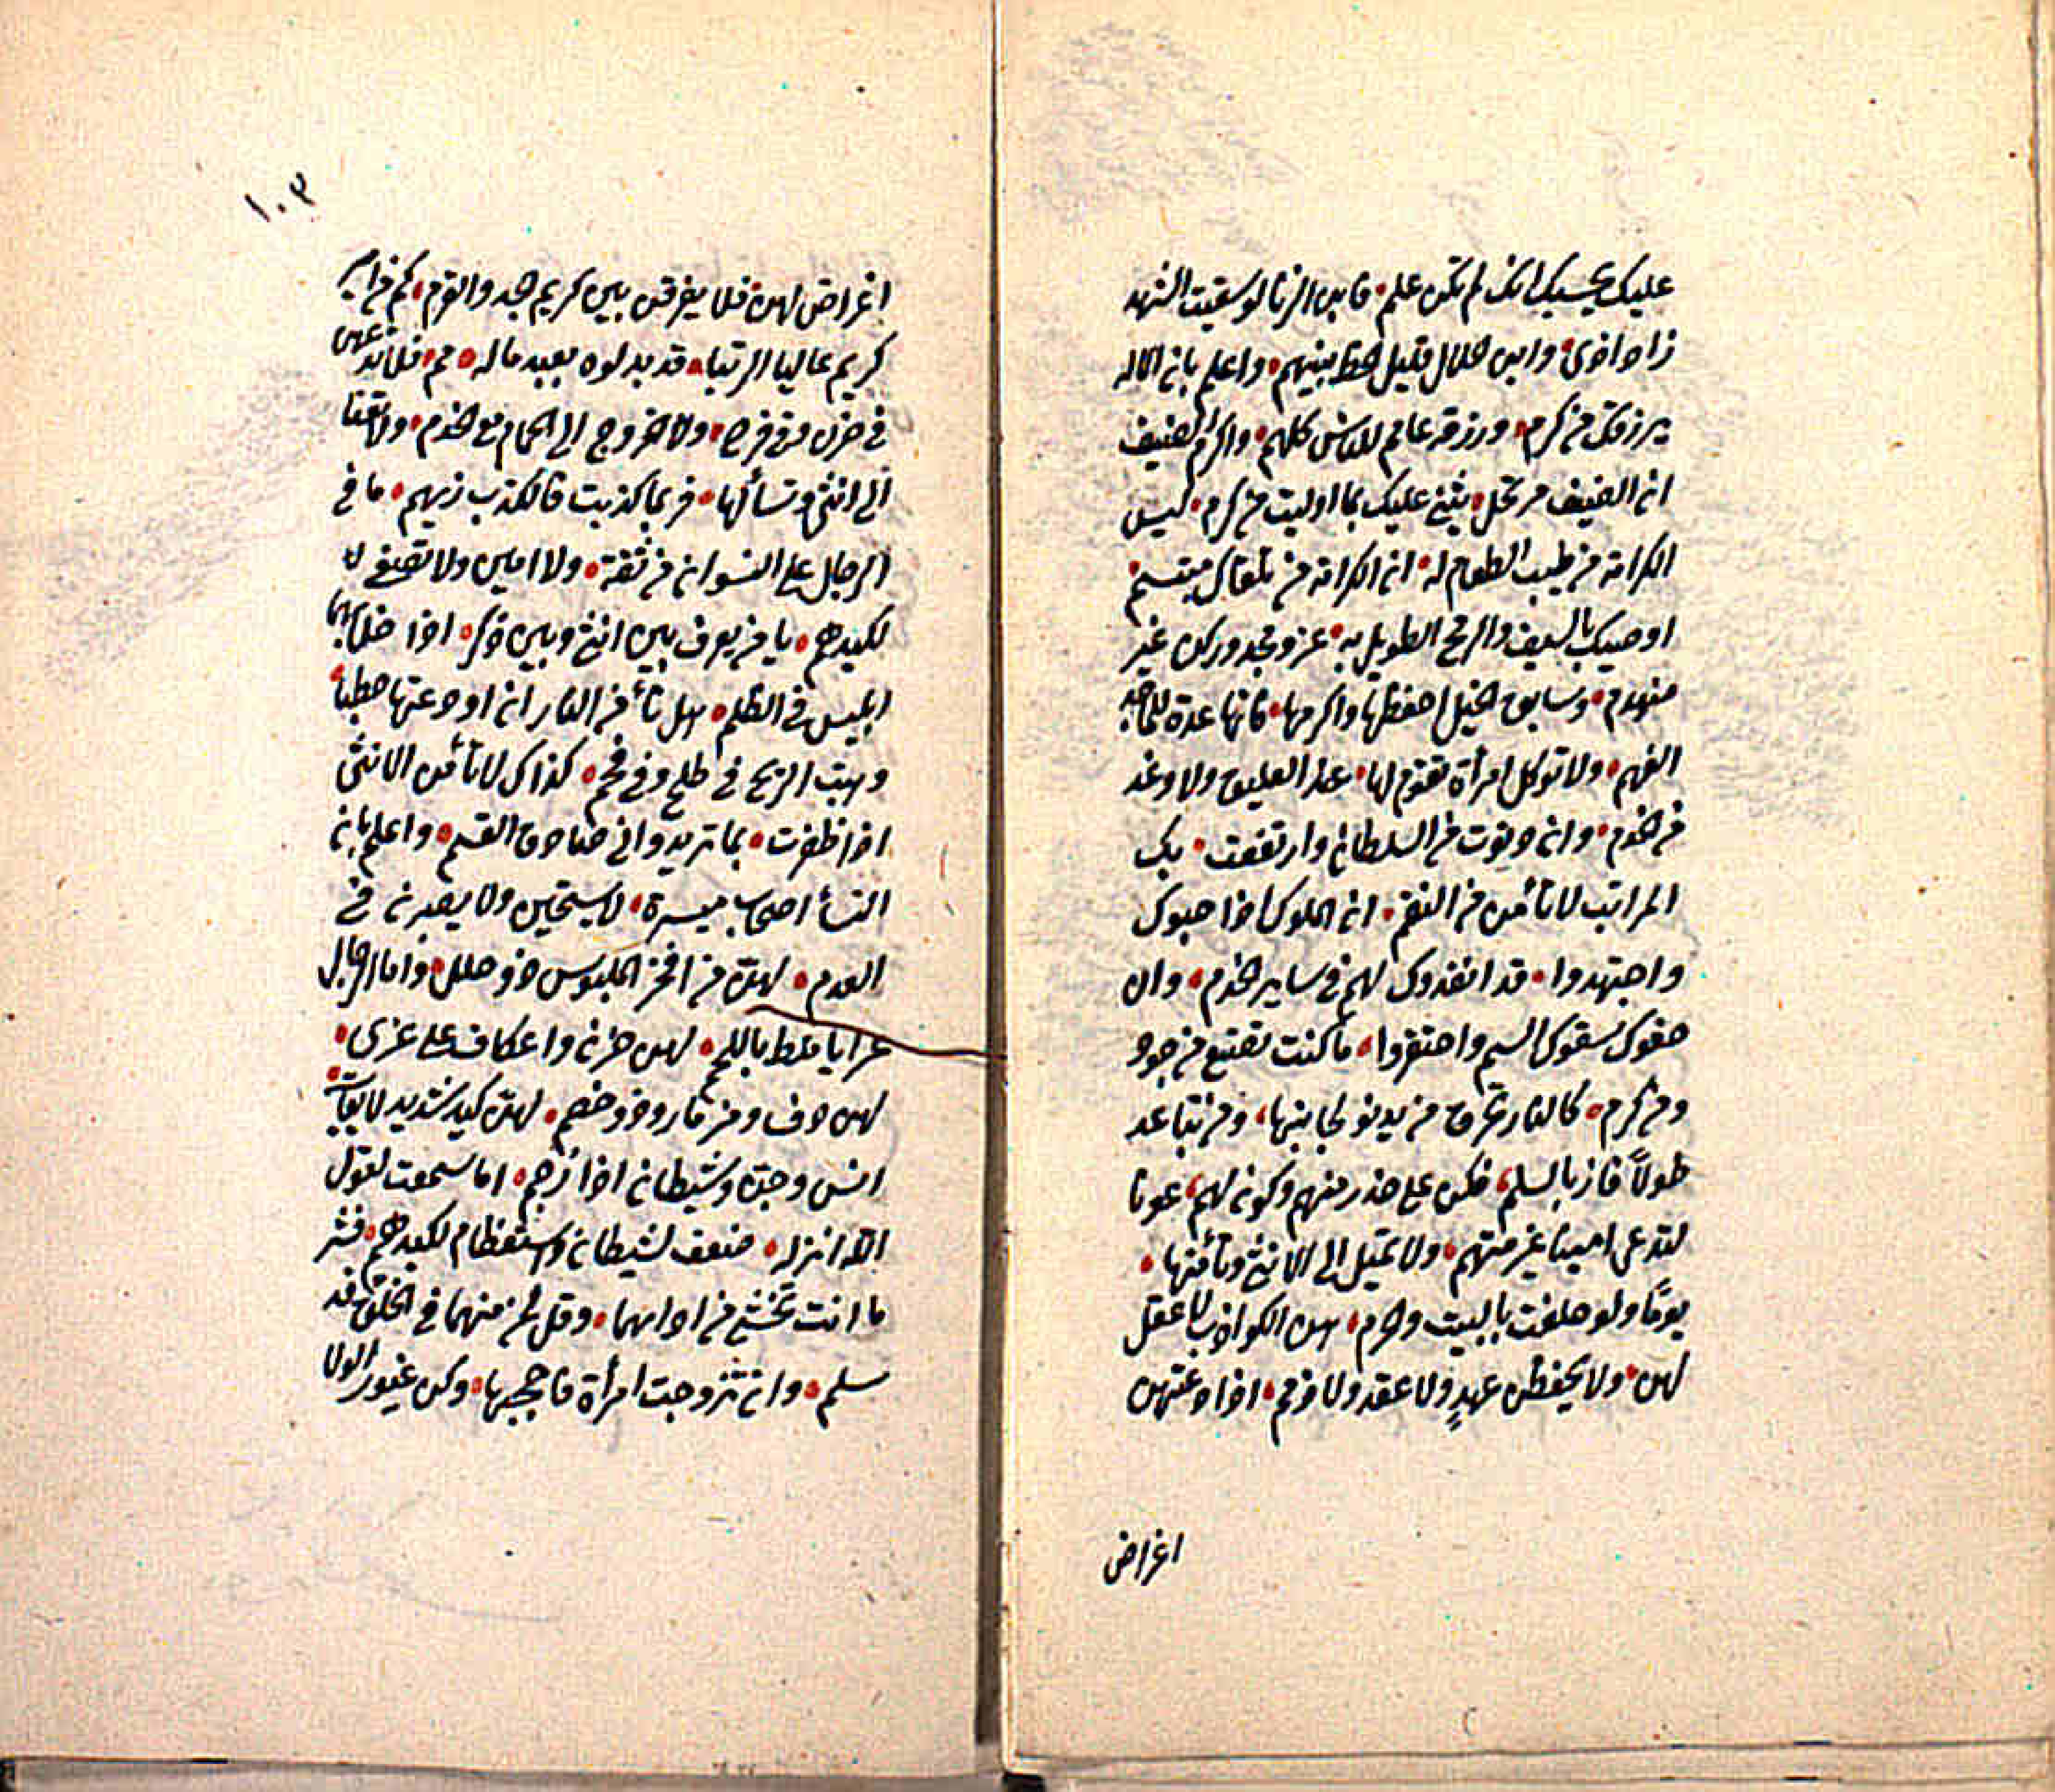 عليك يحسبك انك لم تكن علم فابن الزنا لو سقيت الشهد
زاد اذى وابن حلال قليل الحظ بينهم واعلم بان الاله
يرزقك من كرم ورزقه عام للناس كلهم واكرم الضيف
ان الضيف مرتحل يثني عليك بما اوليت من كرم ليس
الكرامة من طيب الطعام له ان الكرامة من يلقاك مبتسم
اوصيك بالسيف والرمح الطويل به عز ومجد وركن غير
منهدم وسابق الخيل احفظها واكرمها فانها عدة للماجد
الفهم ولا توكل امرأة تقوم لها عند العليق ولا وغد
من الخدم وان دنوت من السلطان وارتفعت بك
المراتب لا تأمن من النقم ان الملوك اذا حبوك
واجتهدوا قد انفدوك لهم في ساير الخدم وان
جفوك سقوك السم واحتقروا ما كنت تصنع من جود
ومن كرم كالنار تحرق من يدنو لجانبها ومن تباعد
طولاً فاز بالسلم فكن على حذر منهم وكون لهم عونا
لتدعى امينا غير متهم ولا تميل الى الانثى وتأمنها
يومًا ولو حلفت بالبيت والحرم هن الكواذب لا عقل
لهن ولا يحفظن عهدٍ ولا عقد ولا ذمم اذا دعتهن
اغراض
١٠٣
اغراض لهن فلا يفرقن بين كريم الجد والقزم كم من امير
كريم عاليا الرتبا قد بدلوه بعبد ماله فلا تدعهن
في حزن وفي فرح ولا الخروج الى الحمام مع الخدم ولا
الى انثى وتسألها فربما كذبت فالكذب زيهم ما في
الرجال على النسوان من ثقة ولا امين ولا تصغي
لكيدهم يا من يعرف بين انثى وبين ذكر اذا خلا بهما
ابليس في الظلم هل تأمن النار ان اودعتها حطبا
وهبت الريح في طلح وفي فحم كذاك لا تأمن الانثى
اذا ظفرت بما تريد واني صادق القسم واعلم بان
النسأ اصحاب ميسرة لا يستحين ولا يصبرن في
العدم لهن من افخر الملبوس ذو حلل واما الرجال
عرايا قط باللمم لهن حزن واعكاف على عزى
لهن دف ومزمار وذو خصم لهن كيد شديد لا يقاس
انس وجن وشيطان اذا زحم اما سمعت لقول
الله انزله ضعف الشيطان واستعظام لكيدهم فشر
ما انت تخشى من اداهما وقل من منهما في الخلق قد
سلم وان تزوجت امرأة فاحجبها وكن غيور